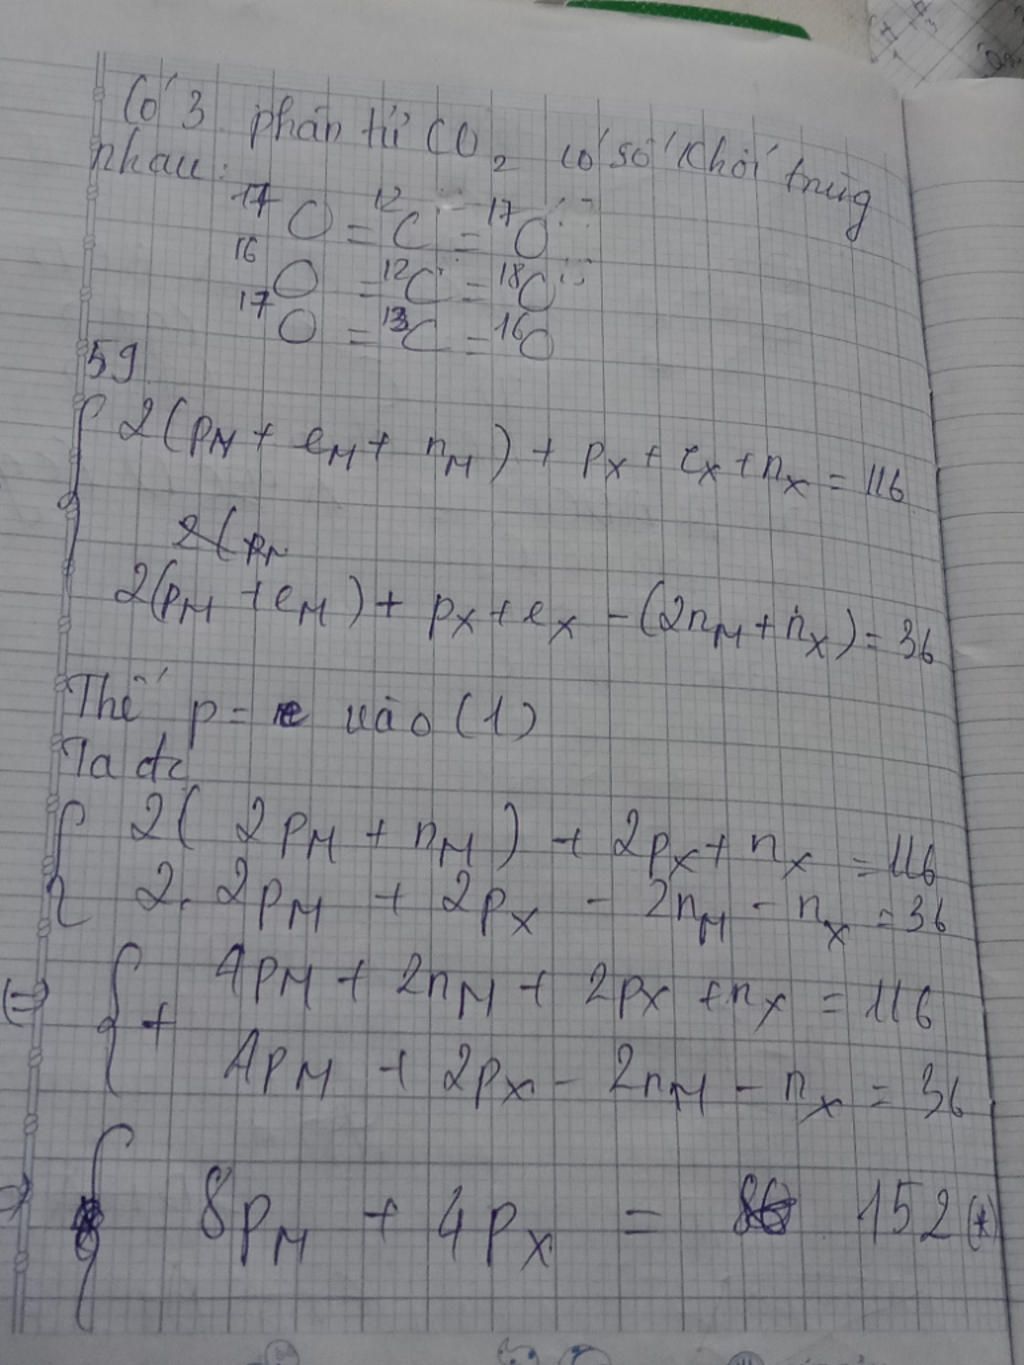 Có 3 phân tử CO₂ có số khối trùng
nhau:
¹⁷O = ¹²C = ¹⁷O
¹⁶O = ¹²C = ¹⁸O
¹⁷O = ¹³C = ¹⁶O
59
2(pM + eM + nM) + pX + eX + nX = 116
2(pM
2(pM + eM) + pX + eX - (2nM + nX) = 36
Thế p = e vào (1)
Ta đc
2( 2pM + nM) + 2pX + nX = 116
2. 2pM + 2pX - 2nM - nX = 36
(=) + 4pM + 2nM + 2pX + nX = 116
4pM + 2pX - 2nM - nX = 36
8pM + 4pX = 152 (*)